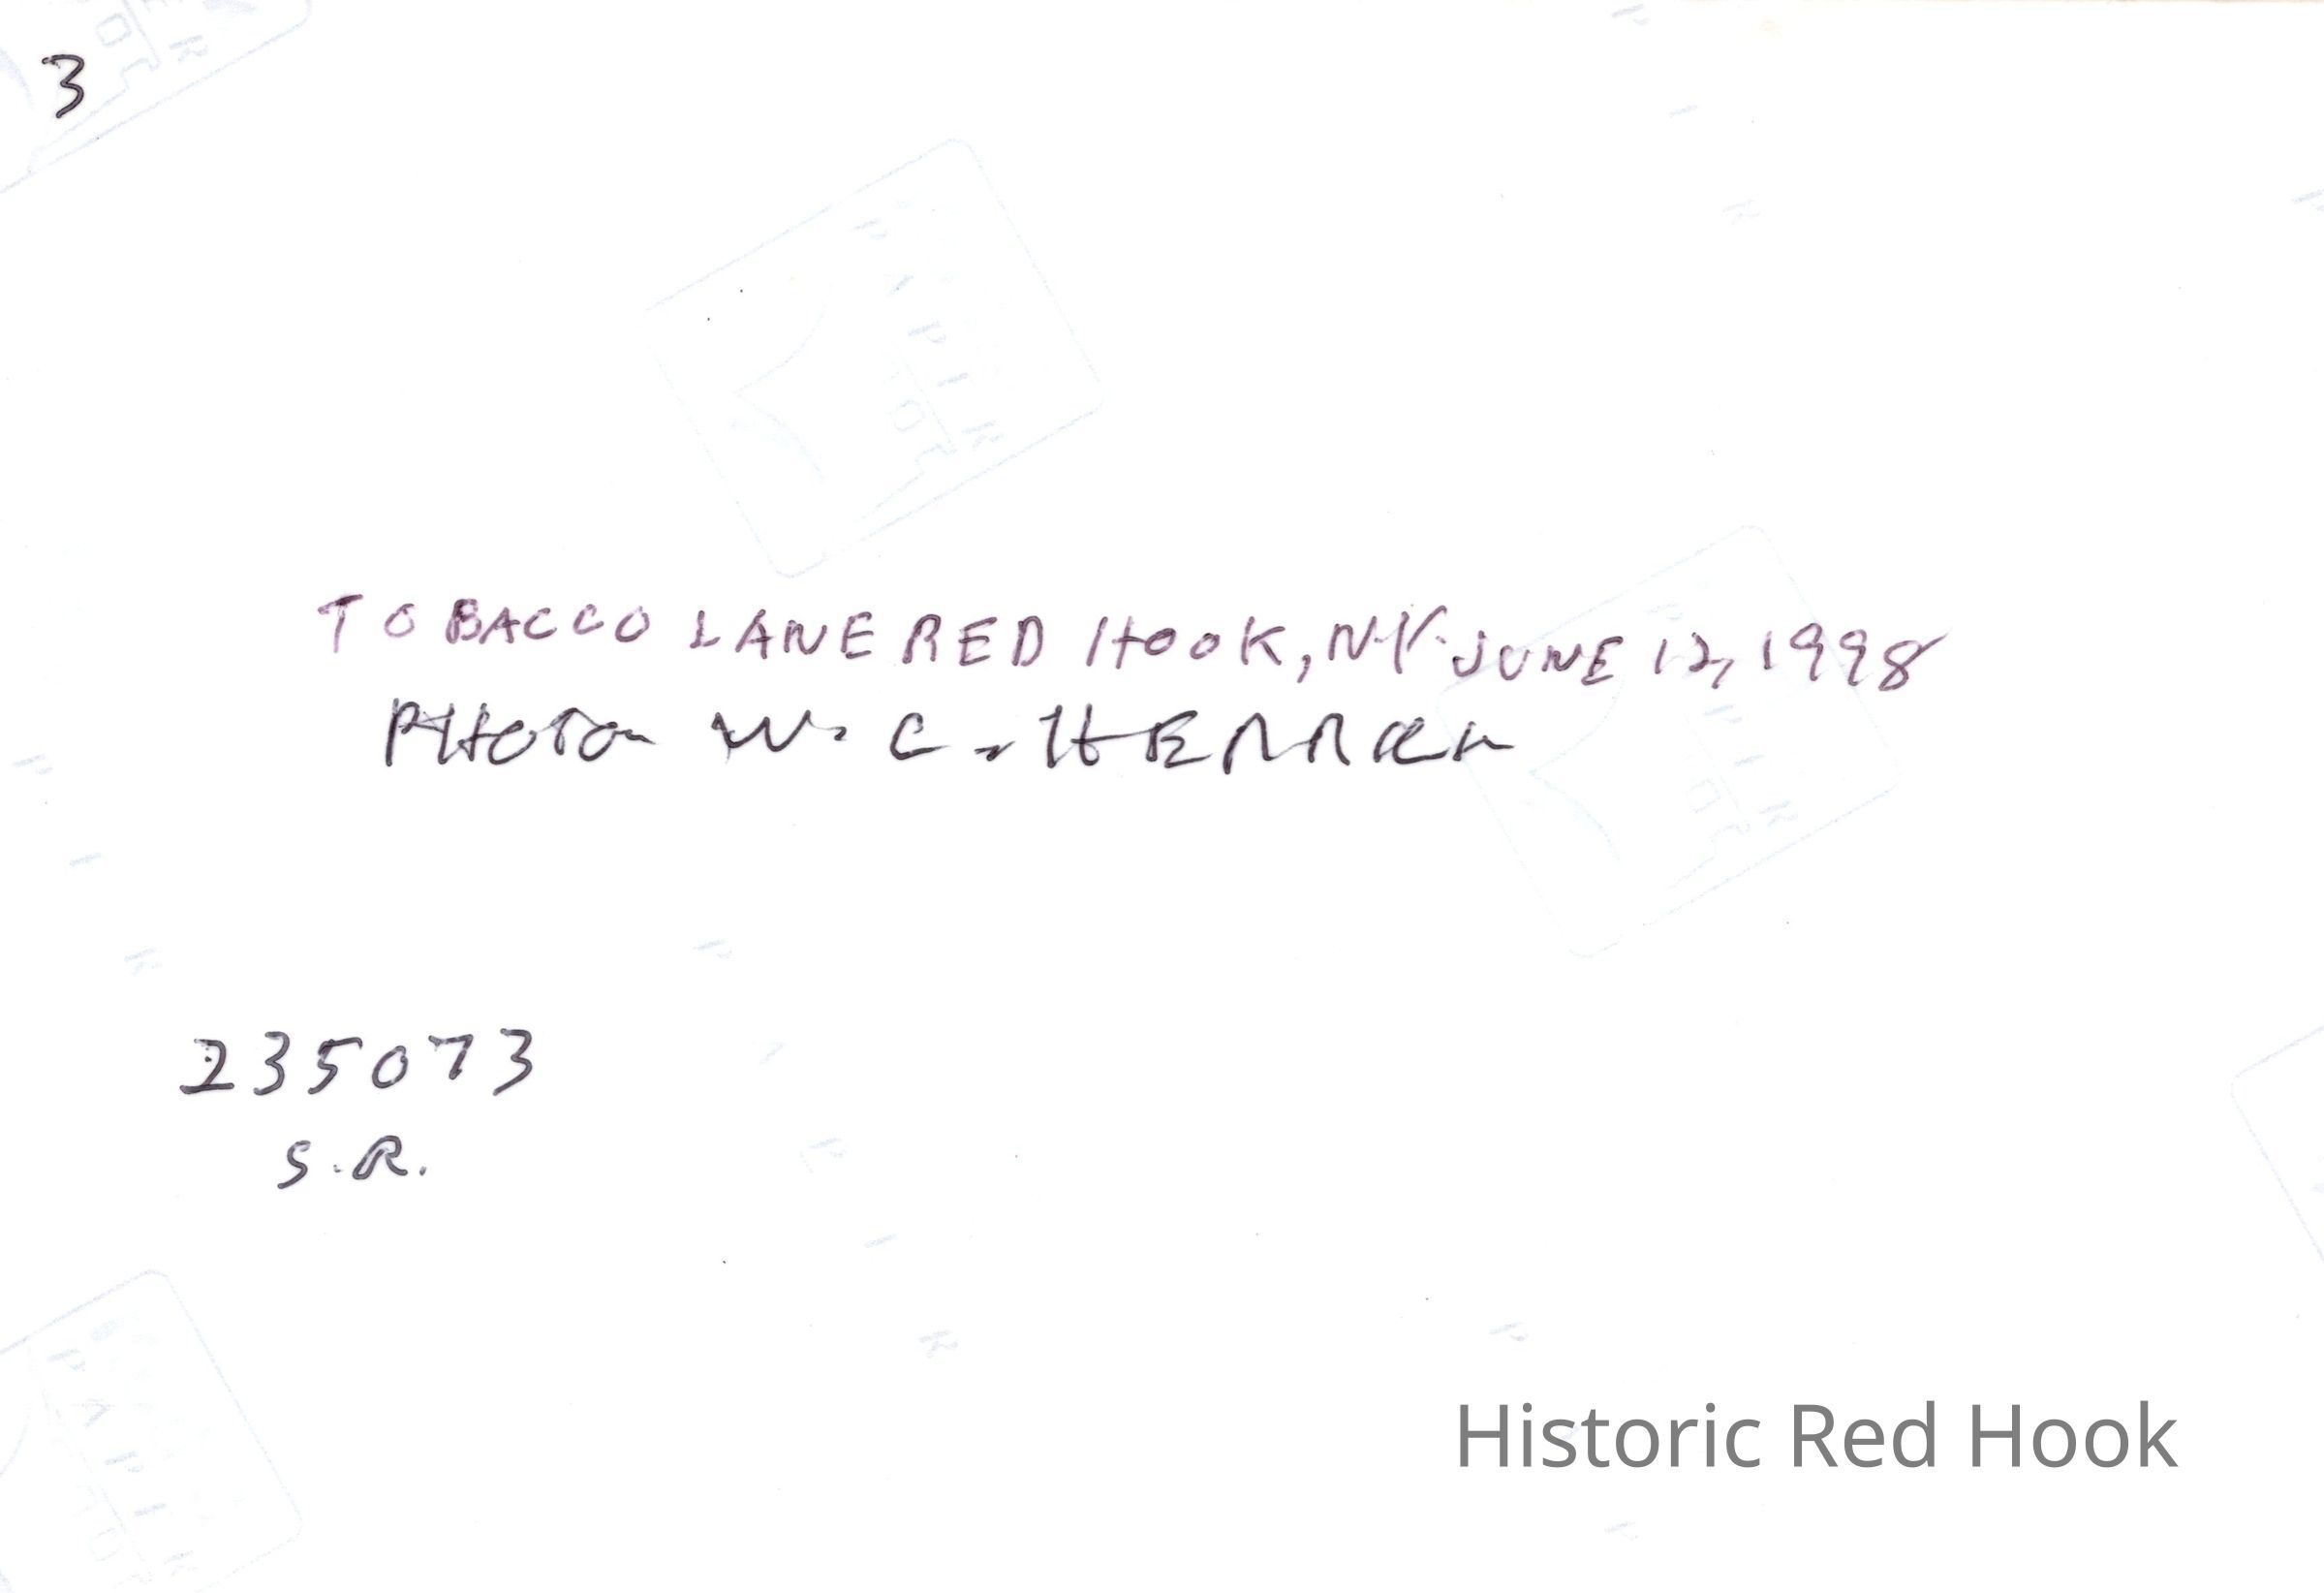 3
TOBACCO LANE RED HOOK, N.Y. JUNE 12, 1998
PHOTO W. C.
235073
S.R.
Historic Red Hook